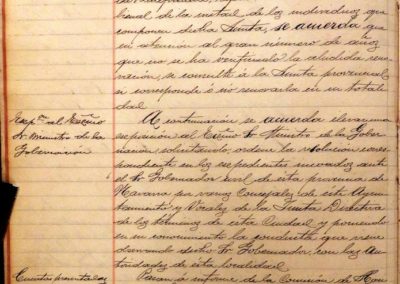 bienal de la mitad de los individuos que
componen dicha Junta, se acuerda que
en atencion al gran número de años
que no se ha verificado la aludida reno-
vación, se consulte á la Junta provincial
si corresponde ó no renovarla en su totali-
dad
Exp.ón al Excmo
Sr Ministro de la
Gobernación
A continuación se acuerda elevar una
exposición al Excmo Sr Ministro de la Gober-
nación solicitando, ordene la resolución corres-
pondiente en los expedientes incoados ante
el Sr Gobernador civil de esta provincia de
Navarra por varios Concejales de este Ayun-
tamiento y Vocales de la Junta Directiva
de los términos de esta Ciudad y poniendo
en su conocimiento la conducta que viene
observando dicho Sr Gobernador, con las Au-
toridades de esta localidad.
Cuentas presentadas
Pasan á informe de la Comisión de Ha-